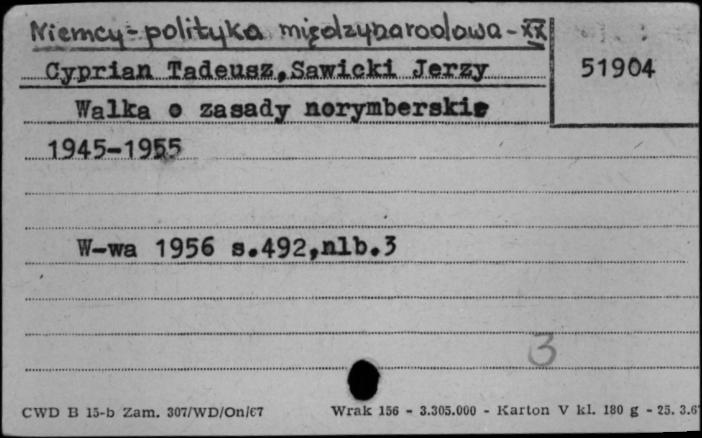 Niemcy - polityka międzynarodowa - XX
Cyprian Tadeusz,Sawicki Jerzy
51904
Walka o zasady norymberskie
1945-1955
W-wa 1956 s.492,nlb.3
3
CWD B 15-b Zam. 307/WD/On/67 Wrak 156 - 3.305.000 - Karton V kl. 180 g - 25. 3.6